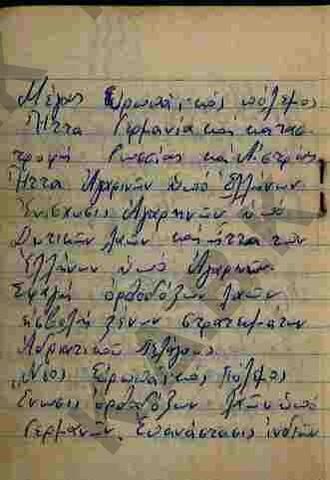 Μέγας Εὐρωπαϊκός πόλεμος.
Ἧττα Γερμανίας καί κατασ-
τροφή Ρωσσίας καί Αὐστρίας
Ἧττα Ἀγαρηνῶν ὑπό Ἑλλήνων
Ἐνίσχυσις Ἀγαρηνῶν ὑπό
Δυτικῶν λαῶν καί ἧττα τῶν
Ἑλλήνων ὑπό Ἀγαρηνῶν.
Σφαγή ὀρθοδόξων λαῶν
εἰσβολή ξένων στρατευμάτων
Πελάγους.
Νέος Εὐρωπαϊκός Πόλεμος
Ἕνωσις ὀρθοδόξων λαῶν ὑπό
Γερμανῶν. Ἐπανάστασις ἰνδιῶν